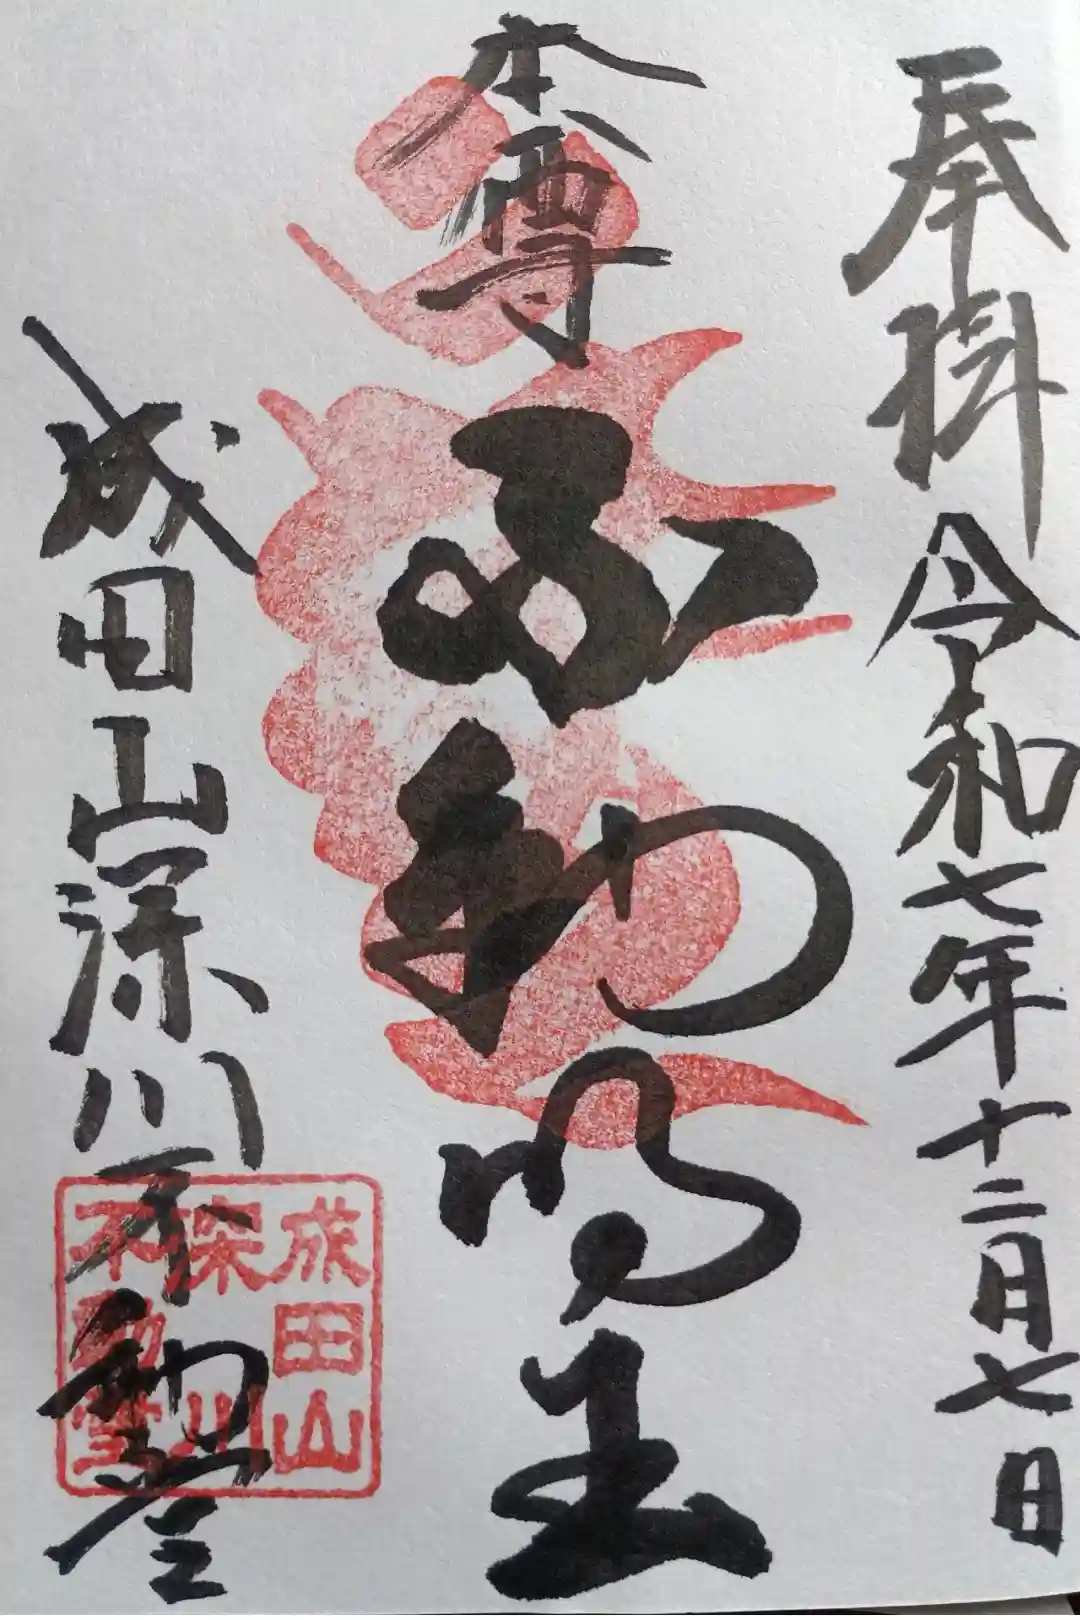 奉拝 令和七年十二月七日
本尊
不動明王
成田山深川不動堂
成田山
深川
不動堂